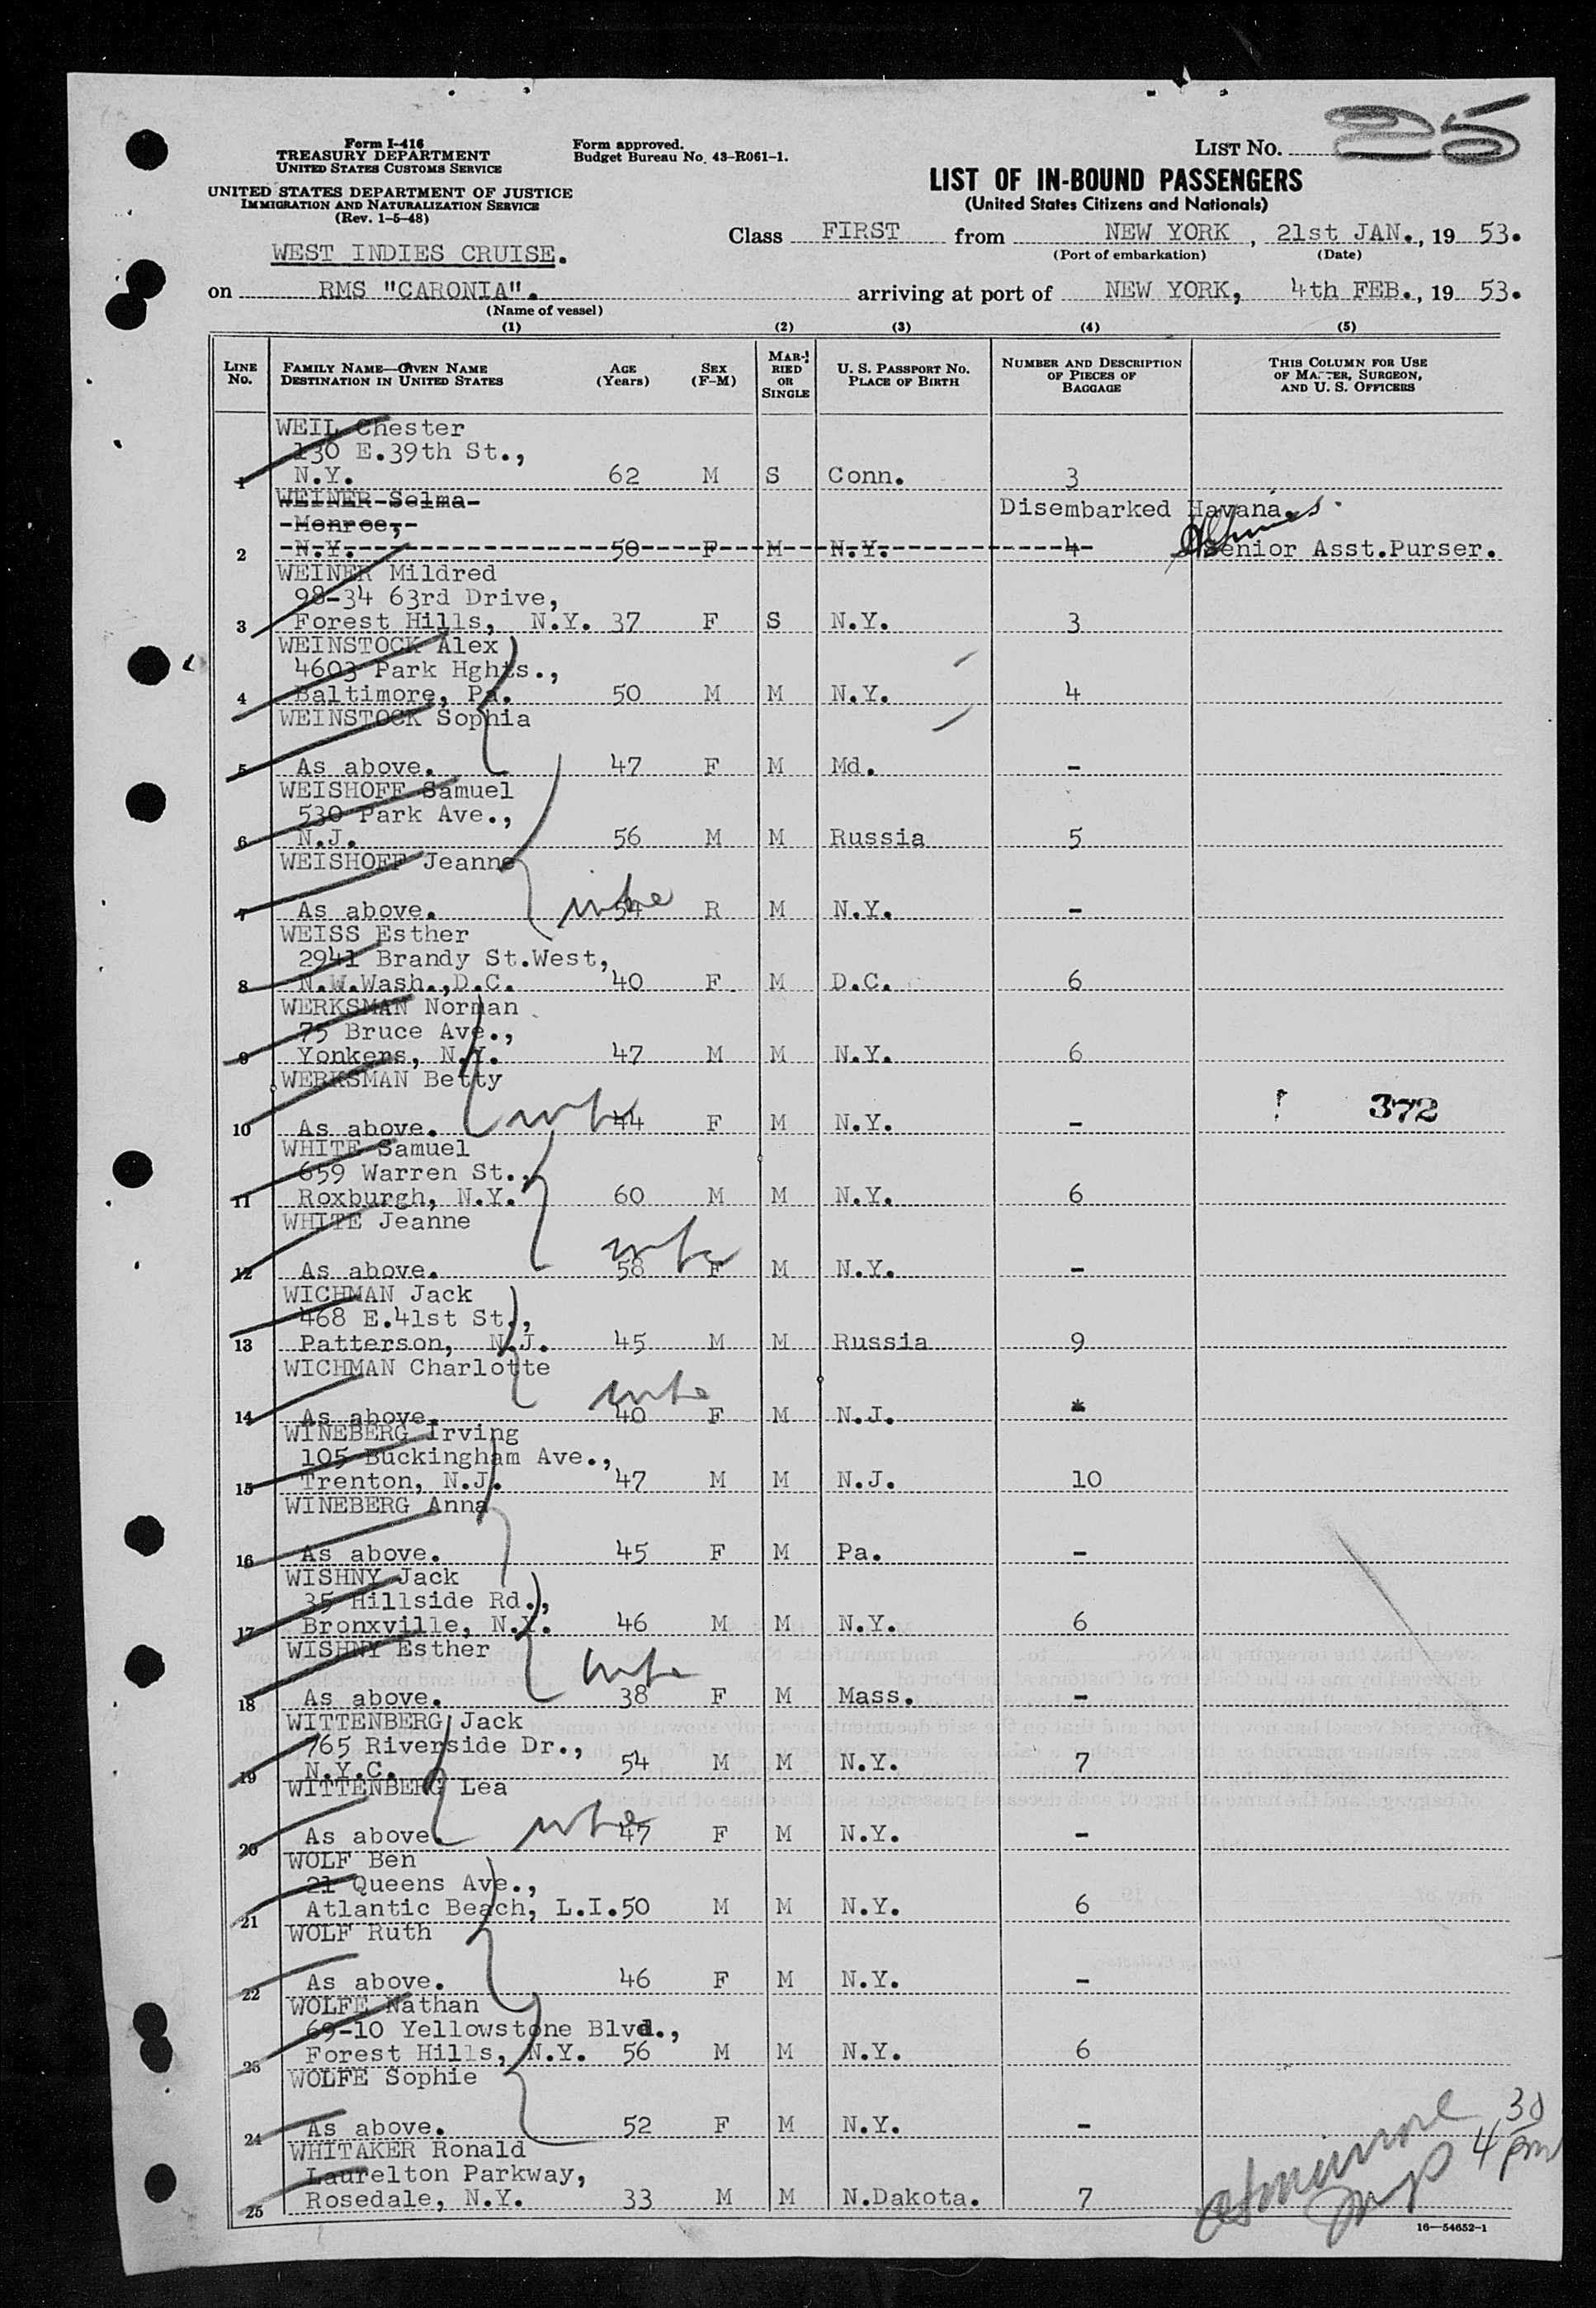 Form I-416
TREASURY DEPARTMENT
UNITED STATES CUSTOMS SERVICE
UNITED STATES DEPARTMENT OF JUSTICE
IMMIGRATION AND NATURALIZATION SERVICE
(Rev. 1-5-48)
Form approved.
Budget Bureau No. 43-R061-1.
LIST No. 25
LIST OF IN-BOUND PASSENGERS
(United States Citizens and Nationals)
WEST INDIES CRUISE.
Class FIRST from NEW YORK, 21st JAN., 19 53.
(Port of embarkation) (Date)
on RMS "CARONIA". arriving at port of NEW YORK, 4th FEB., 19 53.
(Name of vessel)
(1) (2) (3) (4) (5)
LINE No. FAMILY NAME—GIVEN NAME DESTINATION IN UNITED STATES AGE (Years) SEX (F-M) MARRIED OR SINGLE U. S. PASSPORT No. PLACE OF BIRTH NUMBER AND DESCRIPTION OF PIECES OF BAGGAGE THIS COLUMN FOR USE OF MASTER, SURGEON, AND U. S. OFFICERS
WEIL Chester
130 E.39th St.,
1 N.Y. 62 M S Conn. 3
WEINER Selma
Monroe, Disembarked Havana.
2 N.Y. 50 F M N.Y. 4 Senior Asst.Purser.
WEINER Mildred
98-34 63rd Drive,
3 Forest Hills, N.Y. 37 F S N.Y. 3
WEINSTOCK Alex
4603 Park Hghts.,
4 Baltimore, Pa. 50 M M N.Y. 4
WEINSTOCK Sophia
5 As above. 47 F M Md. -
WEISHOFF Samuel
530 Park Ave.,
6 N.J. 56 M M Russia 5
WEISHOFF Jeanne
7 As above. wife 54 R M N.Y. -
WEISS Esther
2941 Brandy St.West,
8 N.W.Wash.,D.C. 40 F M D.C. 6
WERKSMAN Norman
75 Bruce Ave.,
9 Yonkers, N.Y. 47 M M N.Y. 6
WERKSMAN Betty
372
10 As above. wife 44 F M N.Y. -
WHITE Samuel
659 Warren St.,
11 Roxburgh, N.Y. 60 M M N.Y. 6
WHITE Jeanne
wife
12 As above. 58 F M N.Y. -
WICHMAN Jack
468 E.41st St.,
13 Patterson, N.J. 45 M M Russia 9
WICHMAN Charlotte
wife
14 As above. 40 F M N.J. -
WINEBERG Irving
105 Buckingham Ave.,
15 Trenton, N.J. 47 M M N.J. 10
WINEBERG Anna
16 As above. 45 F M Pa. -
WISHNY Jack
35 Hillside Rd.,
17 Bronxville, N.Y. 46 M M N.Y. 6
WISHNY Esther
wife
18 As above. 38 F M Mass. -
WITTENBERG Jack
765 Riverside Dr.,
19 N.Y.C. 54 M M N.Y. 7
WITTENBERG Lea
20 As above. wife 47 F M N.Y. -
WOLF Ben
21 Queens Ave.,
21 Atlantic Beach, L.I. 50 M M N.Y. 6
WOLF Ruth
22 As above. 46 F M N.Y. -
WOLFE Nathan
69-10 Yellowstone Blvd.,
23 Forest Hills, N.Y. 56 M M N.Y. 6
WOLFE Sophie
24 As above. 52 F M N.Y. -
WHITAKER Ronald
Laurelton Parkway,
25 Rosedale, N.Y. 33 M M N.Dakota. 7
4 30 pm
16—54652-1